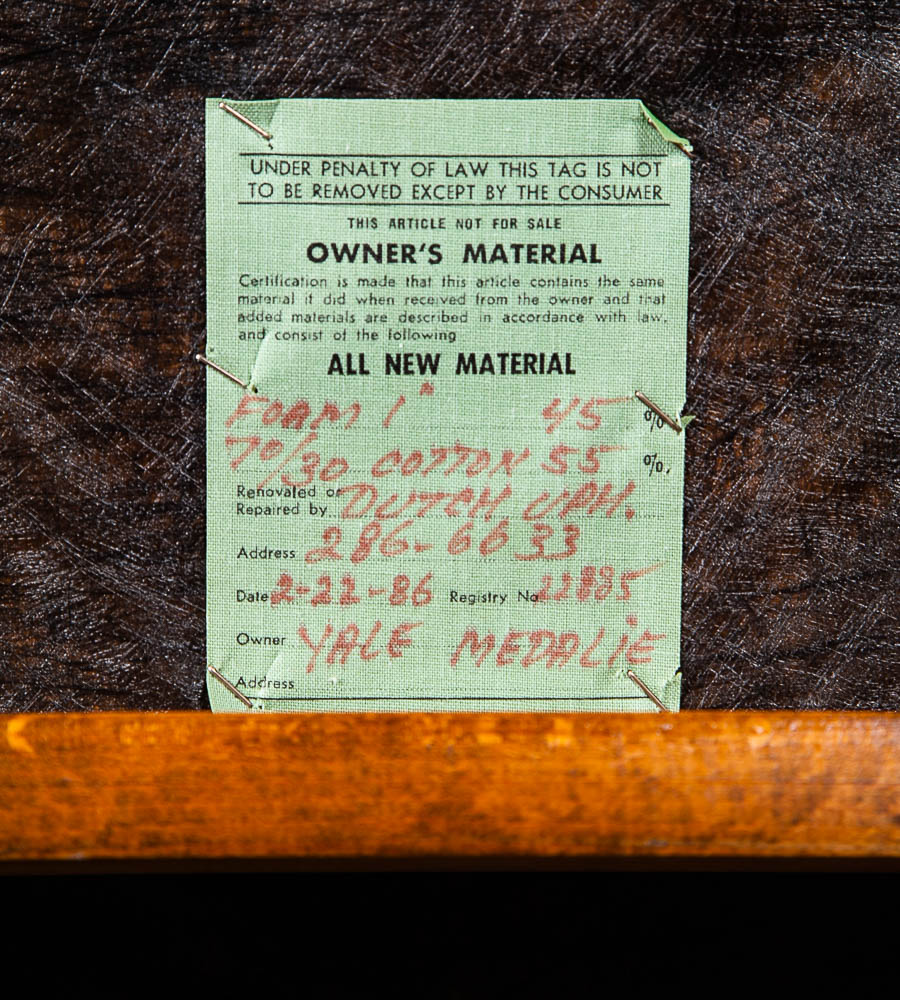 UNDER PENALTY OF LAW THIS TAG IS NOT
TO BE REMOVED EXCEPT BY THE CONSUMER
THIS ARTICLE NOT FOR SALE
OWNER'S MATERIAL
Certification is made that this article contains the same
material it did when received from the owner and that
added materials are described in accordance with law,
and consist of the following
ALL NEW MATERIAL
FOAM 1" 45 %
70/30 COTTON 55 %.
Renovated or
Repaired by DUTCH UPH.
Address 286-6633
Date 2-22-86 Registry No 22885
Owner YALE MEDALIE
Address